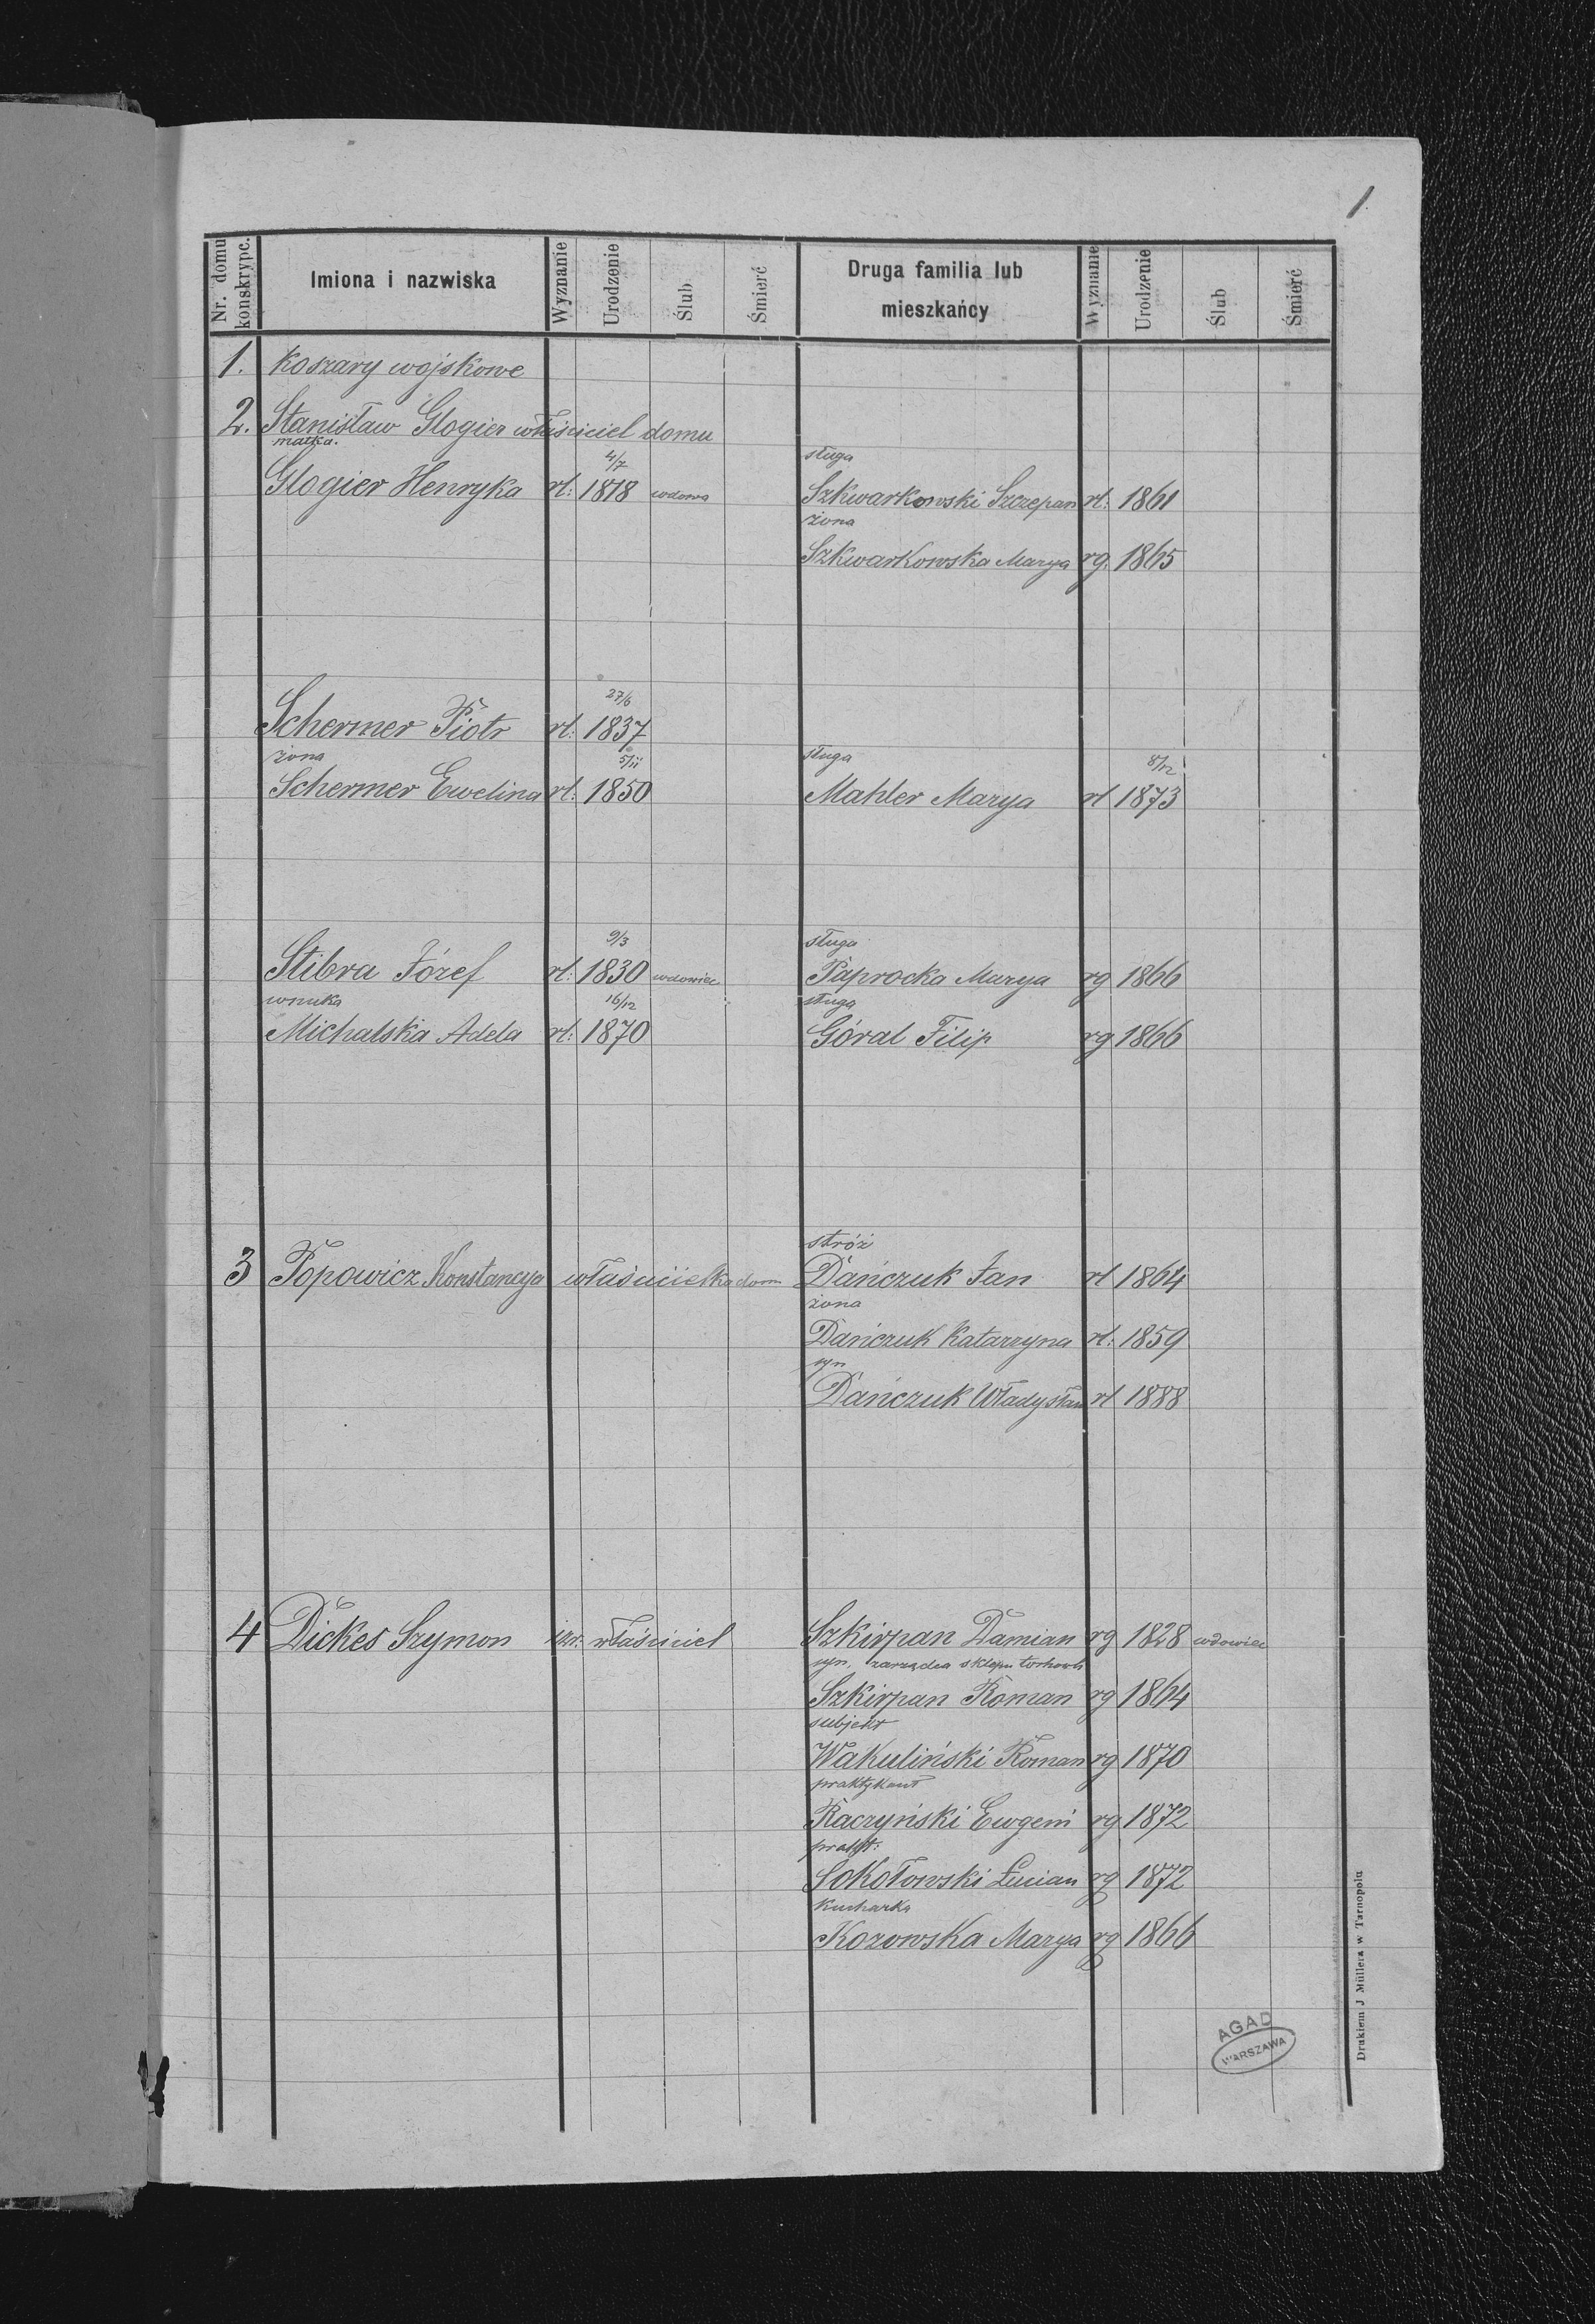 1
Nr. domu konskrypc. Imiona i nazwiska Wyznanie Urodzenie Ślub Śmierć Druga familia lub mieszkańcy Wyznanie Urodzenie Ślub Śmierć
1. Koszary wojskowe
2. Stanisław Glogier właściciel domu
matka. 4/7 sługa
Glogier Henryka rł: 1818 wdowa Szkwarkowski Szczepan rł: 1861
żona
Szkwarkowska Marya rg. 1865
27/6
Schermer Piotr rł: 1837
żona 5/11 sługa 8/12
Schermer Ewelina rł: 1850 Mahler Marya rł 1873
9/3 sługa
Stibra Józef rł: 1830 wdowiec Paprocka Marya rg 1866
wnuka 16/12 sługa
Michalska Adela rł: 1870 Góral Filip rg 1866
stróż
3 Popowicz Konstancya właścicielka dom Dańczuk Jan rł 1864
żona
Dańczuk Katarzyna rł: 1859
syn
Dańczuk Władysław rł 1888
4 Dickes Szymon izr. właściciel Szkirpan Damian rg 1828 wdowiec
syn, zarządca sklepu
Szkirpan Roman rg 1864
subjekt
Wakuliński Roman rg 1870
praktykant
Raczyński Ewgeni rg 1872
prakt:
Sokołowski Łucian rg 1872
Kucharka
Kozowska Marya rg 1866
AGAD
WARSZAWA
Drukiem J Müllera w Tarnopolu